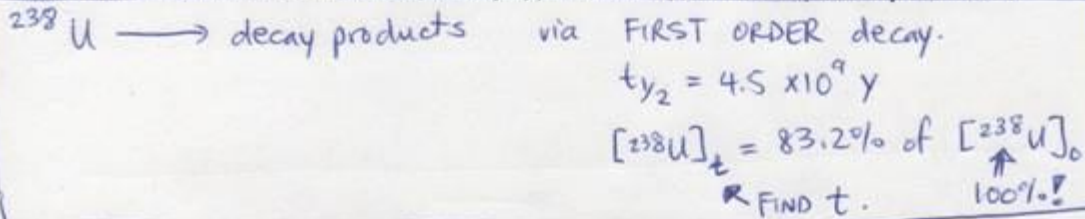 ²³⁸U ⟶ decay products via FIRST ORDER decay.
t½ = 4.5 ×10⁹ y
[²³⁸U]ₜ = 83.2% of [²³⁸U]₀
↖ FIND t. ⇑ 100%!